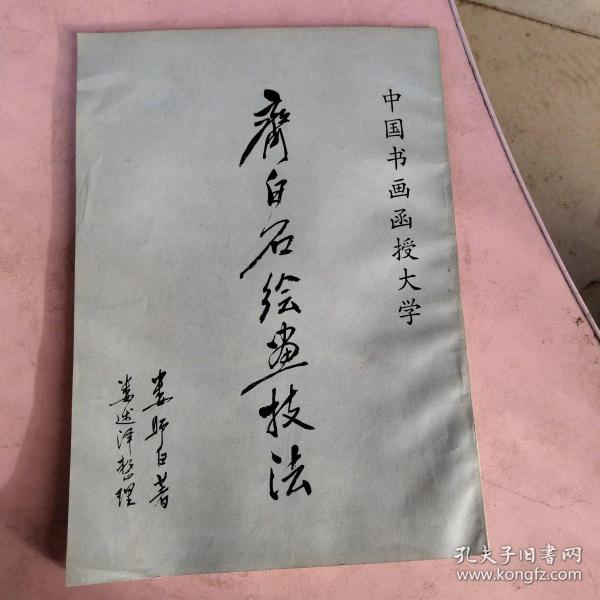 中国书画函授大学
齊白石绘畫技法
娄师白著
娄述泽整理
孔夫子旧書网
www.kongfz.com